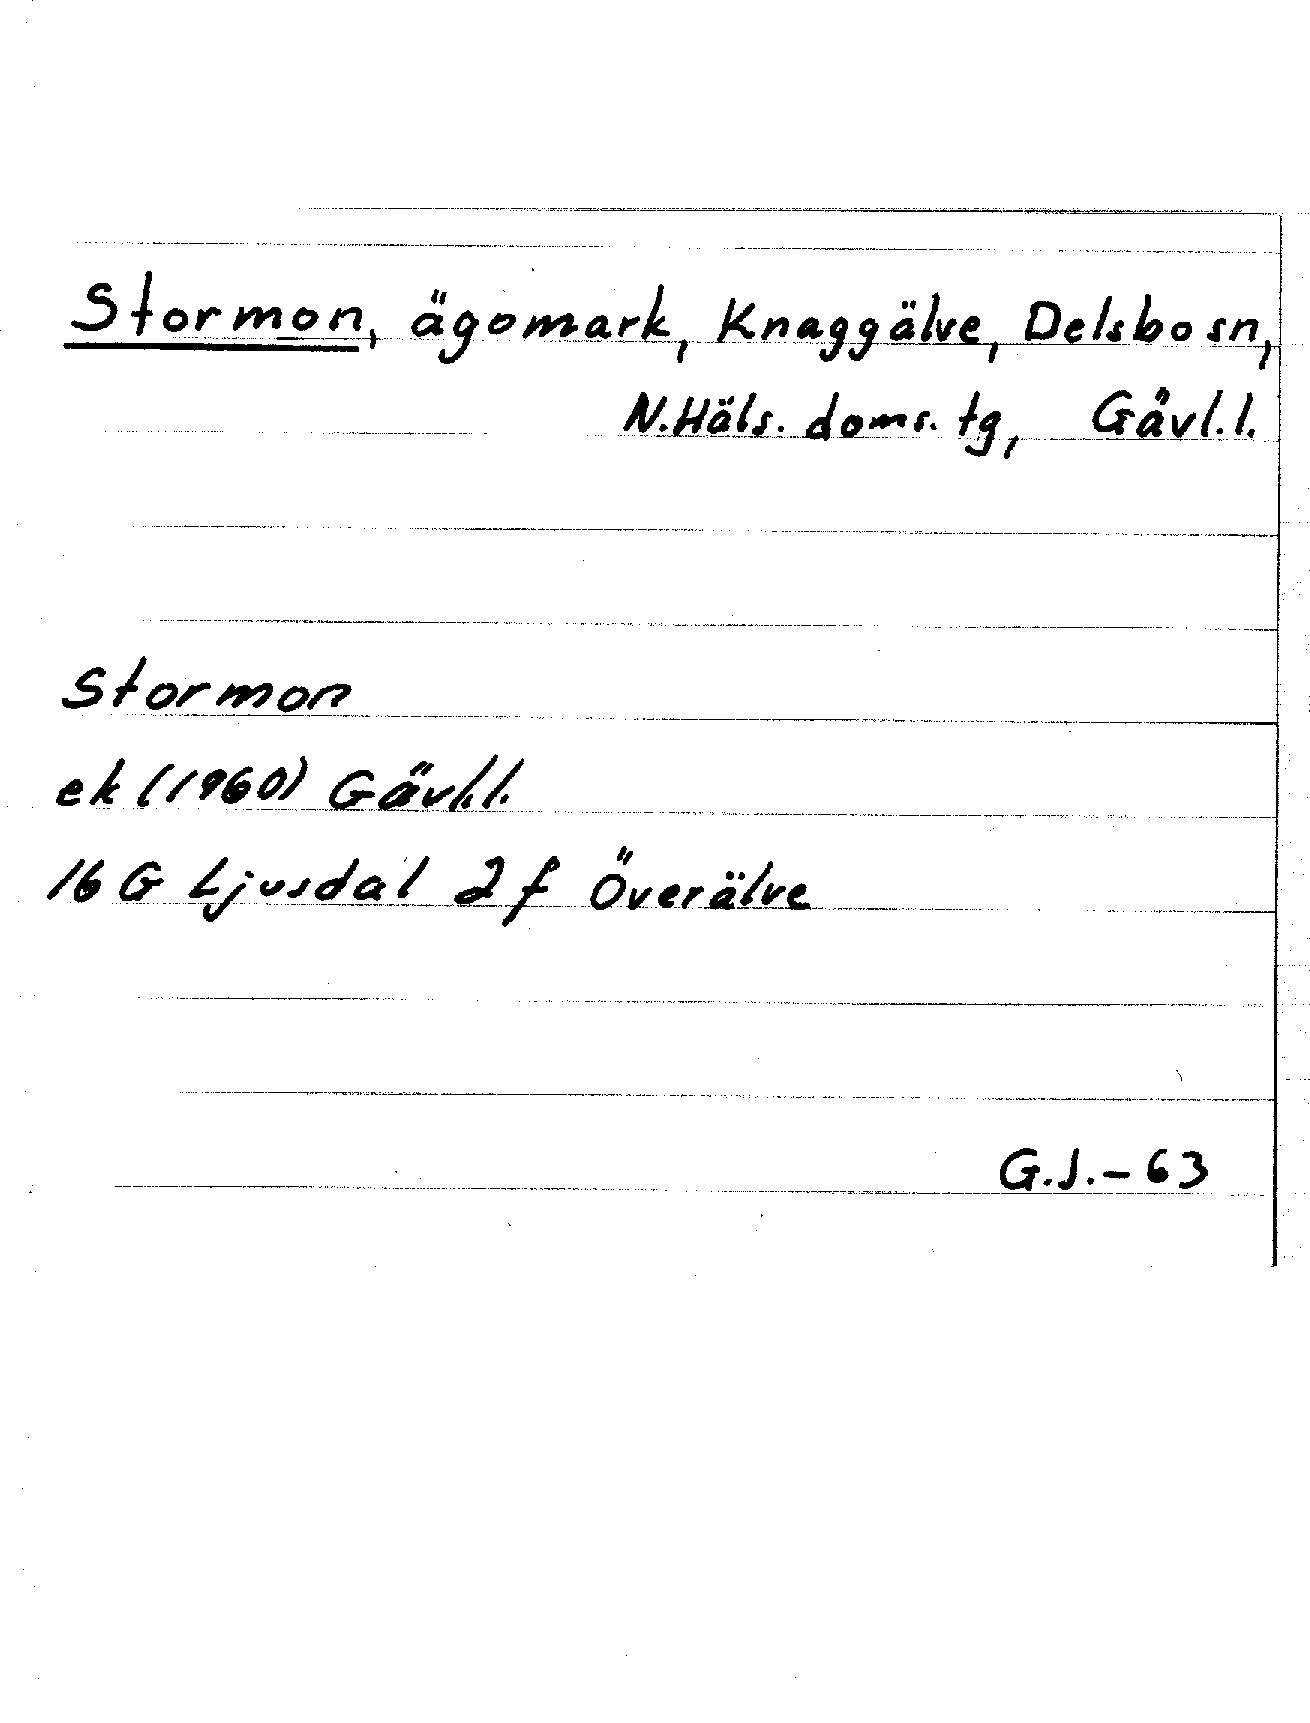 Stormon, ägomark, Knaggälve, Delsbo sn,
N.Häls. doms. tg, Gävl.l.
Stormon
ek (1960) Gävl.l.
16 G Ljusdal 2 f Överälve
G.J.-63